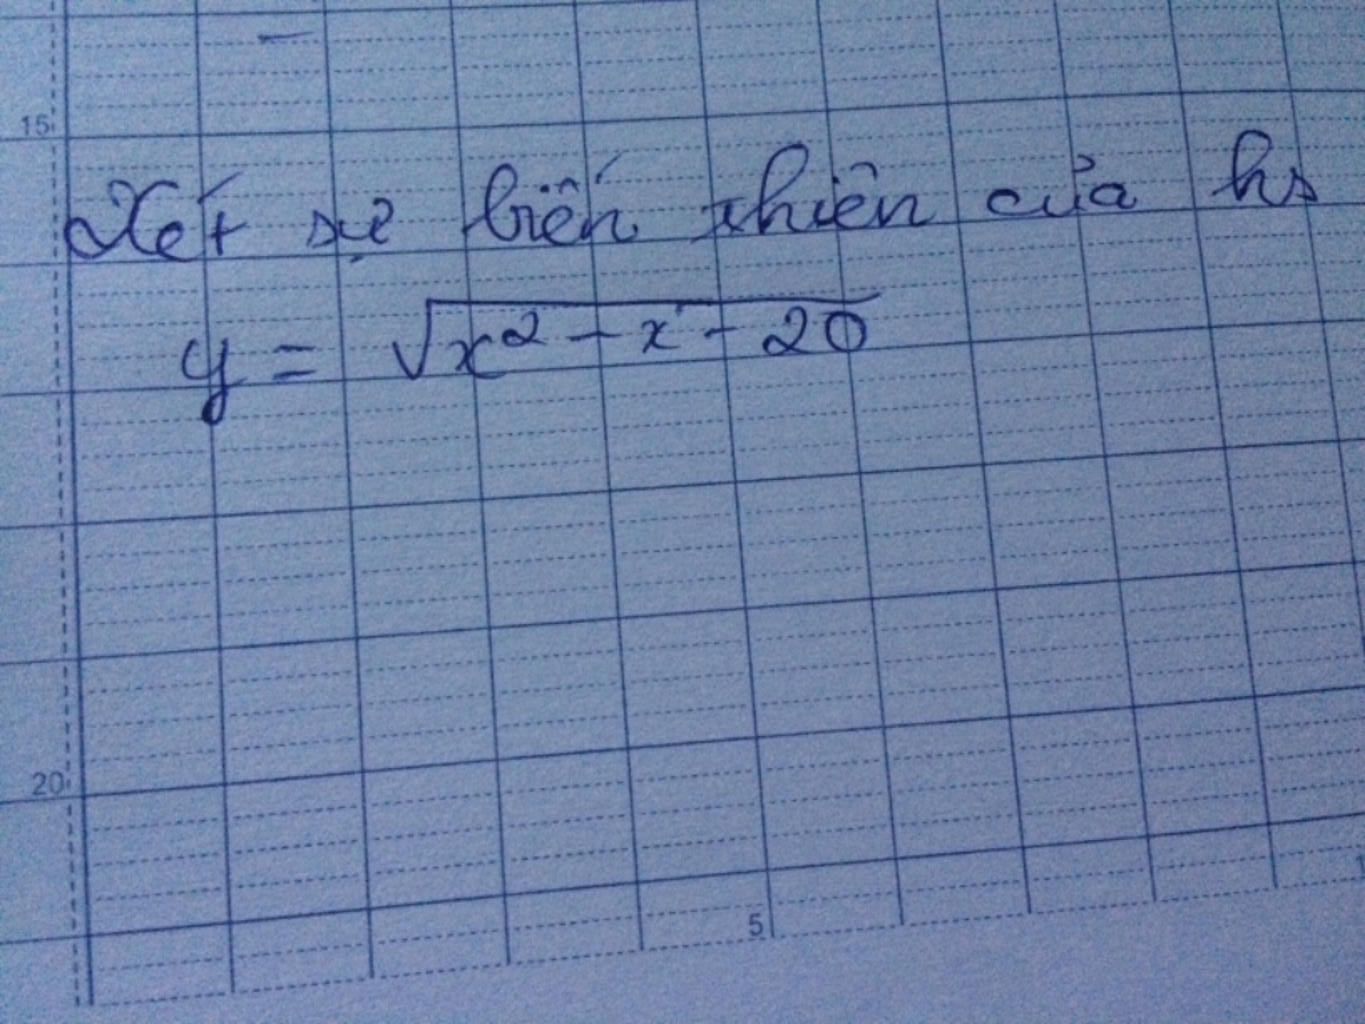 15
Xét sự biến thiên của hs
y = √x² - x - 20
20
5